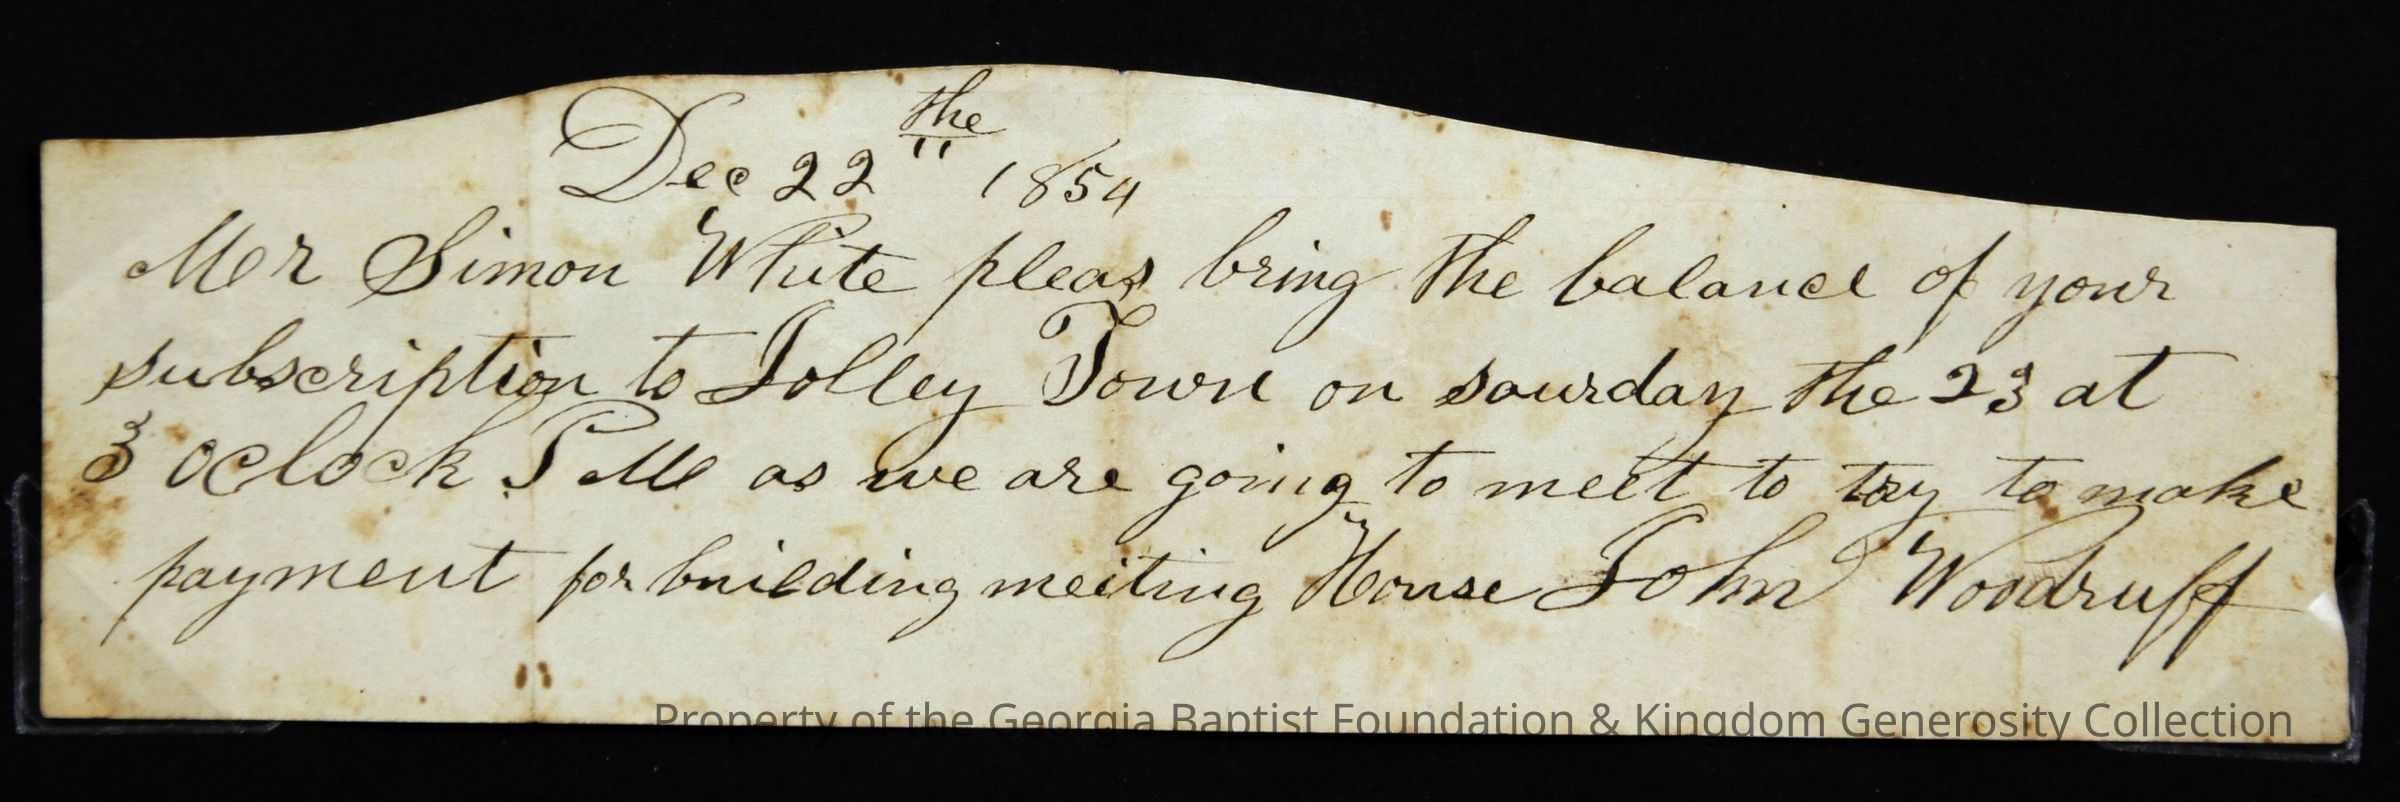 Dec 22 the 1854
Mer Simon White pleas bring the balance of your
subscription to Jolley Town on saurday the 23 at
3 oclock P M as we are going to meet to try to make
payment for building meiting House John Woodruff
Property of the Georgia Baptist Foundation & Kingdom Generosity Collection